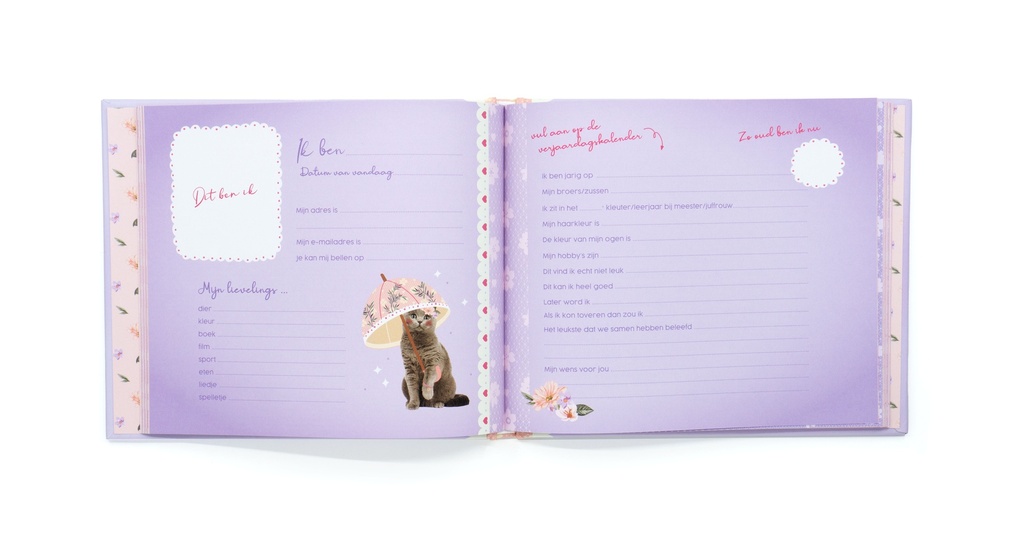 Dit ben ik
Ik ben
Datum van vandaag
Mijn adres is
Mijn e-mailadres is
je kan mij bellen op
Mijn lievelings ...
dier
kleur
boek
film
sport
eten
liedje
spelletje
vul aan op de
verjaardagskalender
Zo oud ben ik nu
Ik ben jarig op
Mijn broers/zussen
Ik zit in het kleuter/leerjaar bij meester/juffrouw
Mijn haarkleur is
De kleur van mijn ogen is
Mijn hobby's zijn
Dit vind ik echt niet leuk
Dit kan ik heel goed
Later word ik
Als ik kon toveren dan zou ik
Het leukste dat we samen hebben beleefd
Mijn wens voor jou